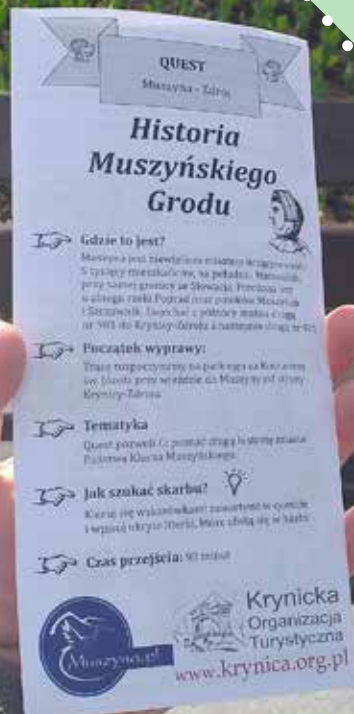 QUEST
Muszyna - Zdrój
Historia
Muszyńskiego
Grodu
Gdzie to jest?
Muszyna jest niewielkim miastem
5 tysięcy mieszkańców, na południu
przy samej granicy ze Słowacją. Położona jest
u zbiegu rzeki Poprad oraz potoków Muszynka
i Szczawnik. Dojechać z północy można drogą
do Krynicy-Zdroju a następnie drogą nr 971
Początek wyprawy:
Trasę rozpoczynamy na parkingu za Kościołem
św. Józefa przy wjeździe do Muszyny od strony
Krynicy-Zdroju.
Tematyka
Quest pozwoli Ci poznać długą historię miasta
Państwa Klucza Muszyńskiego.
Jak szukać skarbu?
Kieruj się wskazówkami zawartymi w queście
i wpisuj ukryte literki, które ułożą się w hasło.
Czas przejścia: 90 minut
Muszyna.pl
Krynicka
Organizacja
Turystyczna
www.krynica.org.pl